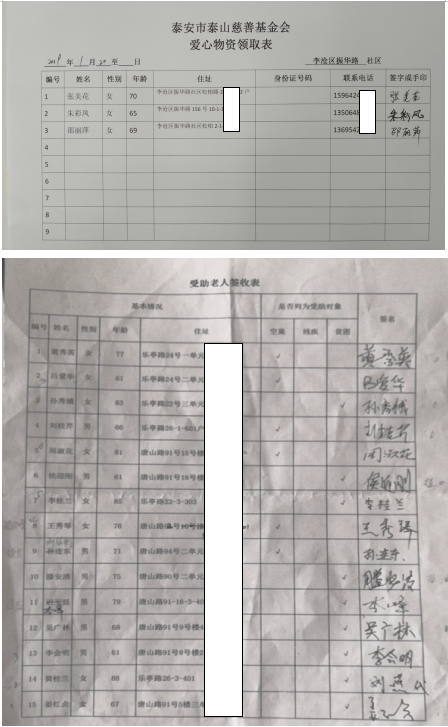 泰安市泰山慈善基金会
爱心物资领取表
年 1 月 20 至 日 李沧区振华路 社区
编号 姓名 性别 年龄 住址 身份证号码 联系电话 签字或手印
1 张美花 女 70 李沧区振华路社区 户 1596424
2 朱彩凤 女 65 李沧区振华路 156 号 10-1- 1350648 朱彩凤
3 邵丽萍 女 69 李沧区振华路社区 2-1- 1369542 邵丽萍
4
5
6
7
8
9
受助老人签收表
基本情况 是否列为受助对象 签名
编号 姓名 性别 年龄 住址 空巢 残疾 贫困
1 女 77 乐亭路24号一单元 ✓
2 吕爱华 女 61 乐亭路24号二单元 ✓ 吕爱华
3 孙秀 女 63 乐亭路22号三单元 ✓ 孙秀
4 刘桂芹 男 66 乐亭路26-1-601户 ✓ 刘桂芹
5 周淑花 女 81 唐山路91号15号楼 ✓ 周淑花
6 男 61 唐山路91号16号楼 ✓
7 李桂兰 女 65 乐亭路22-3-303 ✓ 李桂兰
8 王秀琴 女 76 唐山路 ✓ 王秀琴
9 孙连东 男 71 唐山路94号二单元 ✓ 孙连东
10 滕安清 男 75 唐山路90号二单元 ✓ 滕安清
11 男 79 唐山路91-16-3-40 ✓
12 吴广林 男 68 唐山路91号9号楼 ✓ 吴广林
13 李会明 男 61 唐山路91号8号楼 ✓ 李会明
14 黄桂兰 女 88 乐亭路26-3-401 ✓ 刘燕 代
15 女 67 唐山路91号5楼三单 ✓